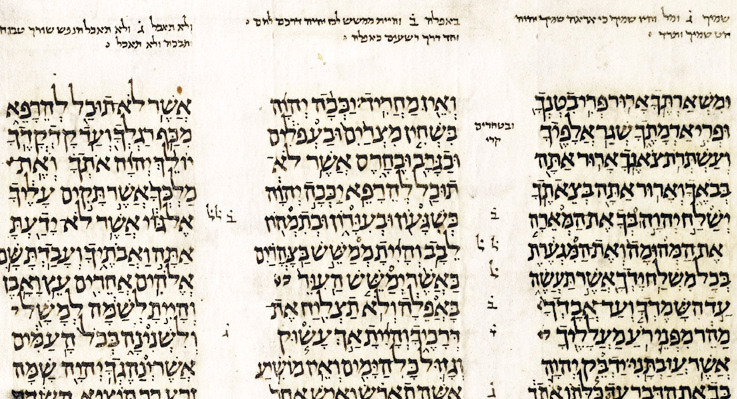 שמיך ג והיו שמיך כי אראה שמיך יהוה
הט שמיך ותרד
ומשארתך ארור פרי בטנך
ופרי אדמתך שגר אלפיך
ועשתרת צאנך ארור אתה
בבאך וארור אתה בצאתך
ישלח יהוה בך את המארה
את המהומה ואת המגערת
בכל משלח ידך אשר תעשה
עד השמדך ועד אבדך
מהר מפני רע מעלליך
אשר עזבתני ידבק יהוה
בך את הדבר עד כלתו אתך
ובטחרים
קרי
ב
ל ל
ל
ב
ג
באפלה ב והיית ממשש
דרך רשעים כאפלה
ואין מחריד יככה יהוה
בשחין מצרים ובעפלים
ובגרב ובחרס אשר לא
תוכל להרפא יככה יהוה
בשגעון ובעורון ובתמהון
לבב והיית ממשש בצהרים
כאשר ימשש העור
באפלה ולא תצליח את
דרכיך והיית אך עשוק
וגזול כל הימים ואין מושיע
אשה תארש ואיש אחר
ב
ג
ולא תאכל ג ולא תאכל הנפש שורך טבוח
תבכה ולא תאכל
אשר לא תוכל להרפא
מכף רגלך ועד קדקדך
יולך יהוה אתך ואת
מלכך אשר תקים עליך
אל גוי אשר לא ידעת
אתה ואבתיך ועבדת שם
אלהים אחרים עץ ואבן
והיית לשמה למשל
ולשנינה בכל העמים
אשר ינהגך יהוה שמה
זרע רב תוציא השדה